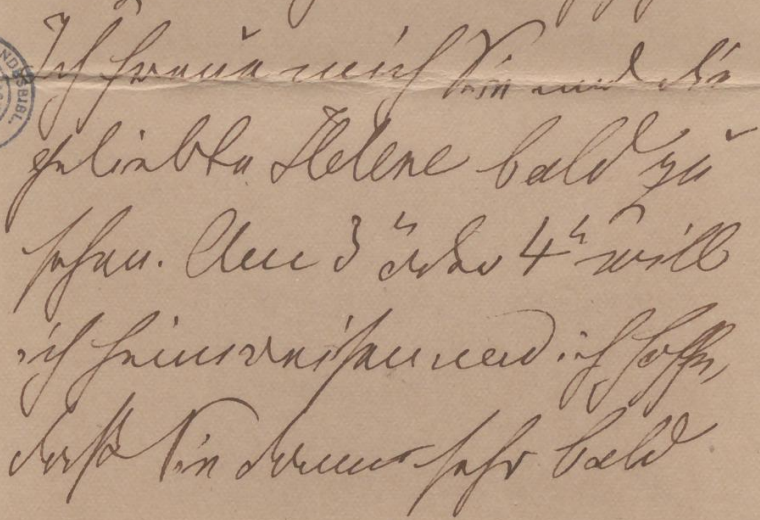 Ich freue mich Sie und die
geliebte Helene bald zu
sehen. Am 3n oder 4n will
ich heimreisen und ich hoffe,
daß Sie dann sehr bald
NDESBIBL.